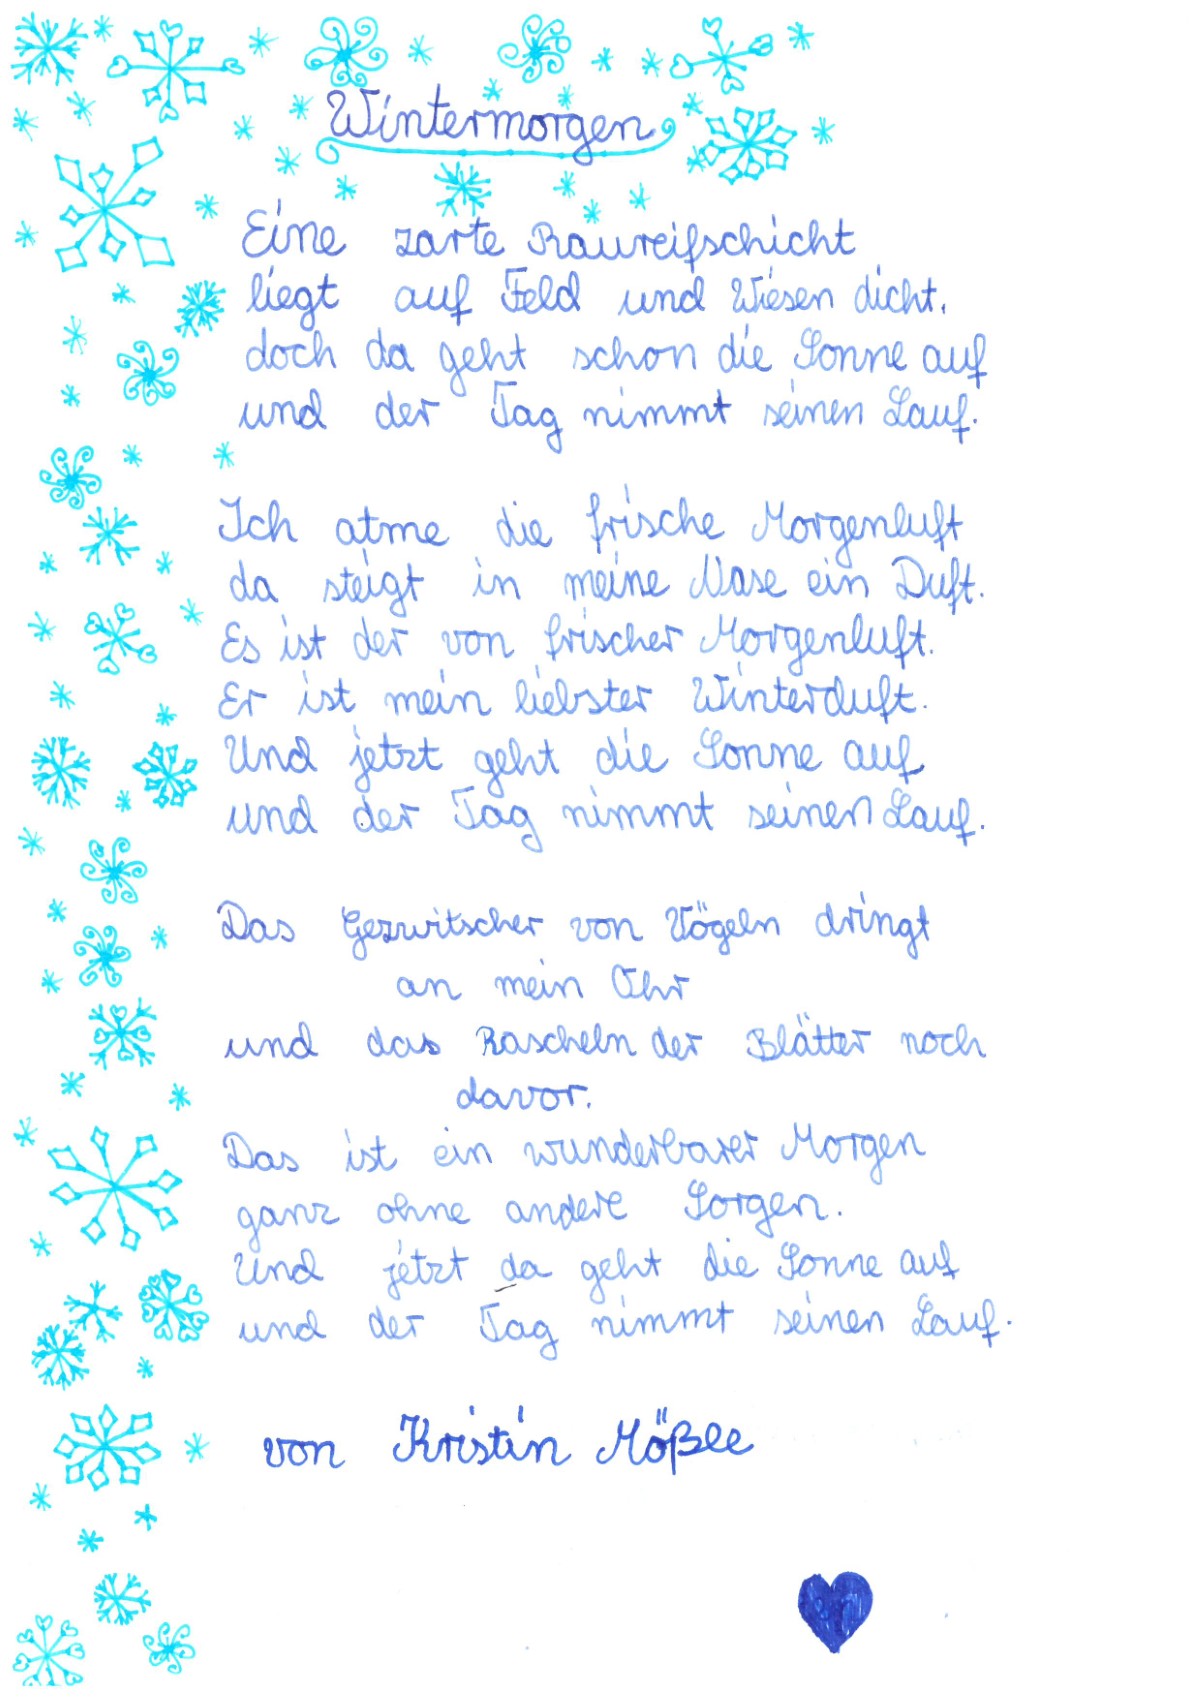 Wintermorgen
Eine zarte Raureifschicht
liegt auf Feld und Wiesen dicht,
doch da geht schon die Sonne auf
und der Tag nimmt seinen Lauf.
Ich atme die frische Morgenluft
da steigt in meine Nase ein Duft.
Es ist der von frischer Morgenluft.
Er ist mein liebster Winterduft.
Und jetzt geht die Sonne auf
und der Tag nimmt seinen Lauf.
Das Gezwitscher von Vögeln dringt
an mein Ohr
und das Rascheln der Blätter noch
davor.
Das ist ein wunderbarer Morgen
ganz ohne andere Sorgen.
Und jetzt da geht die Sonne auf
und der Tag nimmt seinen Lauf.
von Kristin Mößle